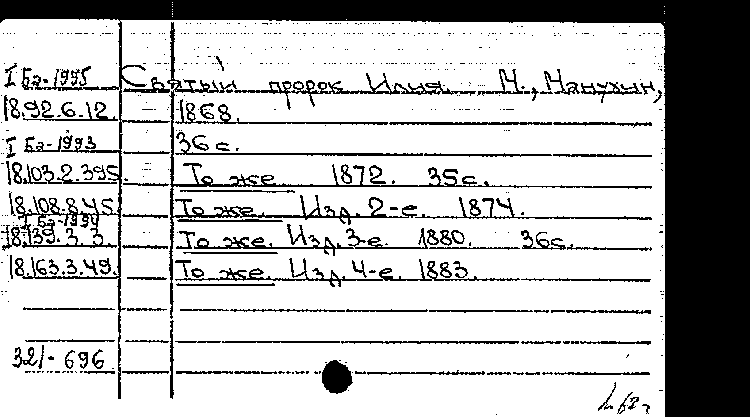 I Ба-1995 Святый пророк Илия. М., Манухин,
18.92.6.12. 1868.
I Ба-1993 36 с.
18.103.2.395. То же 1872. 35 с.
18.108.8.45. То же. Изд. 2-е. 1874.
I Ба-1994
18.139.3.3. То же. Изд. 3-е. 1880. 36 с.
18.163.3.49. То же. Изд. 4-е. 1883.
321-696